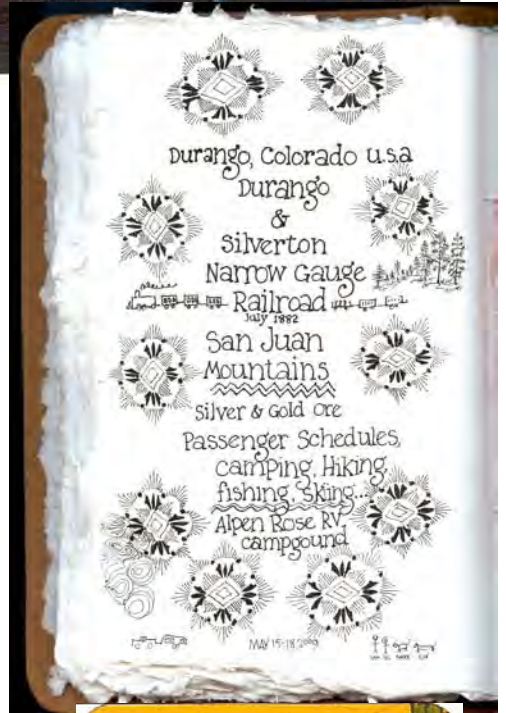 Durango, Colorado u.s.a
Durango
&
Silverton
Narrow Gauge
Railroad
July 1882
San Juan
Mountains
Silver & Gold Ore
Passenger Schedules,
camping, Hiking,
fishing, skiing...
Alpen Rose RV
campgound
MAY 15-18, 2009